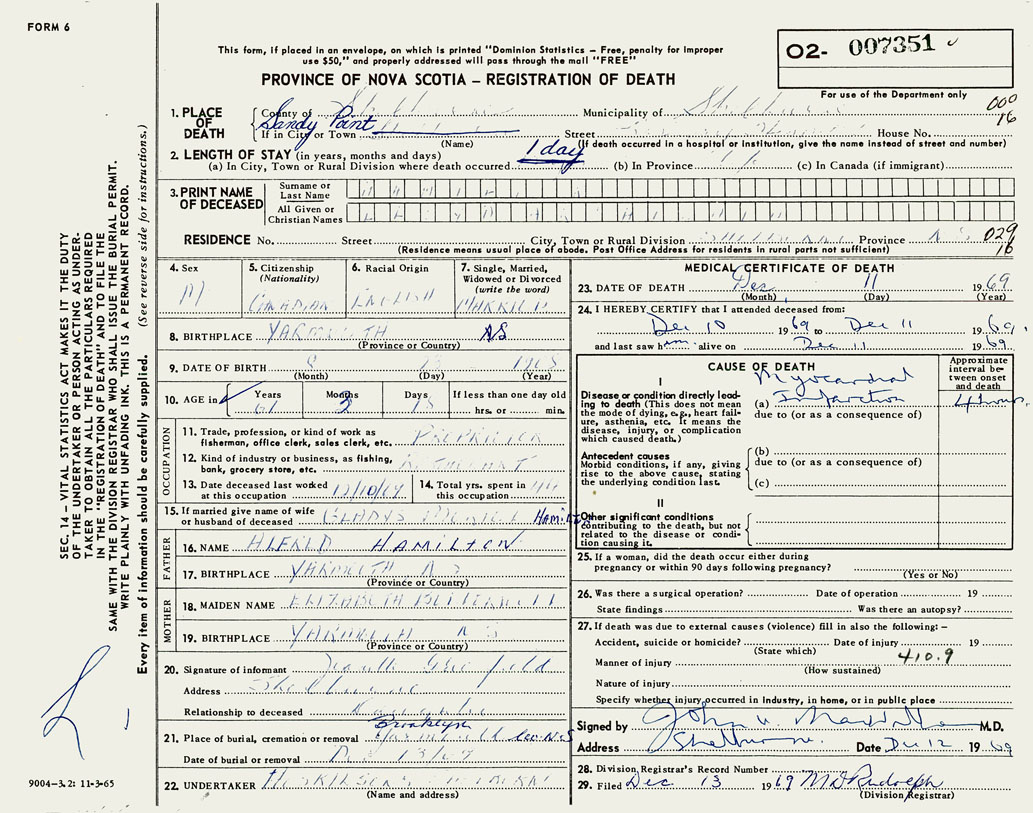 FORM 6
This form, if placed in an envelope, on which is printed "Dominion Statistics – Free, penalty for improper
use $50," and properly addressed will pass through the mail "FREE"
PROVINCE OF NOVA SCOTIA – REGISTRATION OF DEATH
O2- 007351
For use of the Department only
000
16
1. PLACE OF DEATH
County of Municipality of
Sandy Point
If in City or Town Street House No.
(Name) (If death occurred in a hospital or institution, give the name instead of street and number)
2. LENGTH OF STAY (in years, months and days) 1 day
(a) In City, Town or Rural Division where death occurred (b) In Province (c) In Canada (if immigrant)
3. PRINT NAME OF DECEASED
Surname or Last Name
All Given or Christian Names
RESIDENCE No. Street City, Town or Rural Division Province 029
(Residence means usual place of abode. Post Office Address for residents in rural parts not sufficient) 16
4. Sex M
5. Citizenship (Nationality) CANADIAN
6. Racial Origin ENGLISH
7. Single, Married, Widowed or Divorced (write the word) MARRIED
8. BIRTHPLACE YARMOUTH NS
(Province or Country)
9. DATE OF BIRTH 8
(Month) (Day) (Year)
10. AGE in Years Months Days If less than one day old
61 3 hrs. or min.
OCCUPATION
11. Trade, profession, or kind of work as
fisherman, office clerk, sales clerk, etc. PROPRIETOR
12. Kind of industry or business, as fishing,
bank, grocery store, etc.
13. Date deceased last worked
at this occupation 12/10/69
14. Total yrs. spent in
this occupation 44
15. If married give name of wife
or husband of deceased GLADYS
FATHER
16. NAME ALFRED HAMILTON
17. BIRTHPLACE YARMOUTH N S
(Province or Country)
MOTHER
18. MAIDEN NAME ELIZABETH
19. BIRTHPLACE YARMOUTH N S
(Province or Country)
20. Signature of informant
Address Shelburne
Relationship to deceased
21. Place of burial, cremation or removal Brooklyn
Date of burial or removal 13/69
22. UNDERTAKER
(Name and address)
MEDICAL CERTIFICATE OF DEATH
23. DATE OF DEATH Dec 11 1969
(Month) (Day) (Year)
24. I HEREBY CERTIFY that I attended deceased from:
Dec 10 1969 to Dec 11 1969
and last saw him alive on Dec 11 1969
CAUSE OF DEATH
Approximate interval between onset and death
I
Myocardial
Disease or condition directly lead-
ing to death (This does not mean
the mode of dying, e.g., heart fail-
ure, asthenia, etc. It means the
disease, injury, or complication
which caused death.)
(a) Infarction 4 hours
due to (or as a consequence of)
Antecedent causes
Morbid conditions, if any, giving
rise to the above cause, stating
the underlying condition last.
(b)
due to (or as a consequence of)
(c)
II
Other significant conditions
contributing to the death, but not
related to the disease or condi-
tion causing it.
25. If a woman, did the death occur either during
pregnancy or within 90 days following pregnancy?
(Yes or No)
26. Was there a surgical operation? Date of operation 19
State findings Was there an autopsy?
27. If death was due to external causes (violence) fill in also the following: –
Accident, suicide or homicide? Date of injury 19
(State which) 410.9
Manner of injury
(How sustained)
Nature of injury
Specify whether injury occurred in industry, in home, or in public place
Signed by John M.D.
Address Shelburne Date Dec 12 1969
28. Division Registrar's Record Number
29. Filed Dec 13 1969 M D Rudolph
(Division Registrar)
SEC. 14 – VITAL STATISTICS ACT MAKES IT THE DUTY
OF THE UNDERTAKER OR PERSON ACTING AS UNDER-
TAKER TO OBTAIN ALL THE PARTICULARS REQUIRED
IN THE "REGISTRATION OF DEATH" AND TO FILE THE
SAME WITH THE DIVISION REGISTRAR WHO SHALL ISSUE THE BURIAL PERMIT.
WRITE PLAINLY WITH UNFADING INK. THIS IS A PERMANENT RECORD.
Every item of information should be carefully supplied. (See reverse side for instructions.)
9004-3.2: 11-3-65